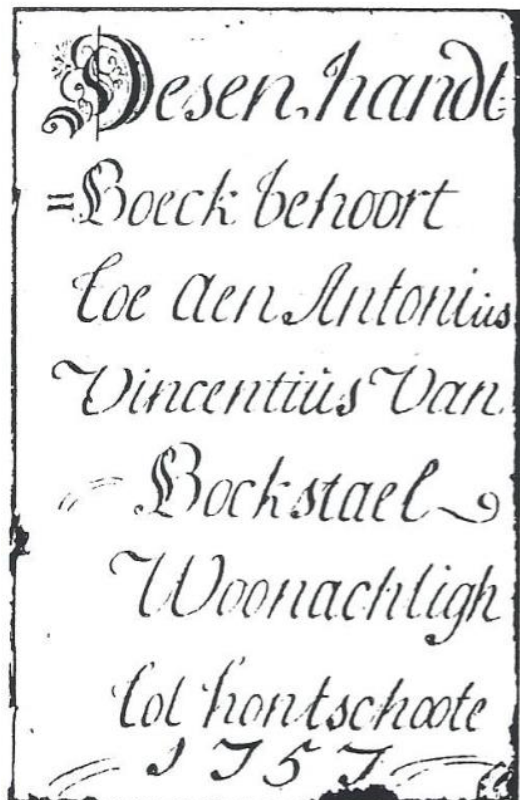 Desen handt
=Boeck behoort
toe aen Antonius
Vincentiüs Van
Bockstael
Woonachtigh
tot hontschoote
1757